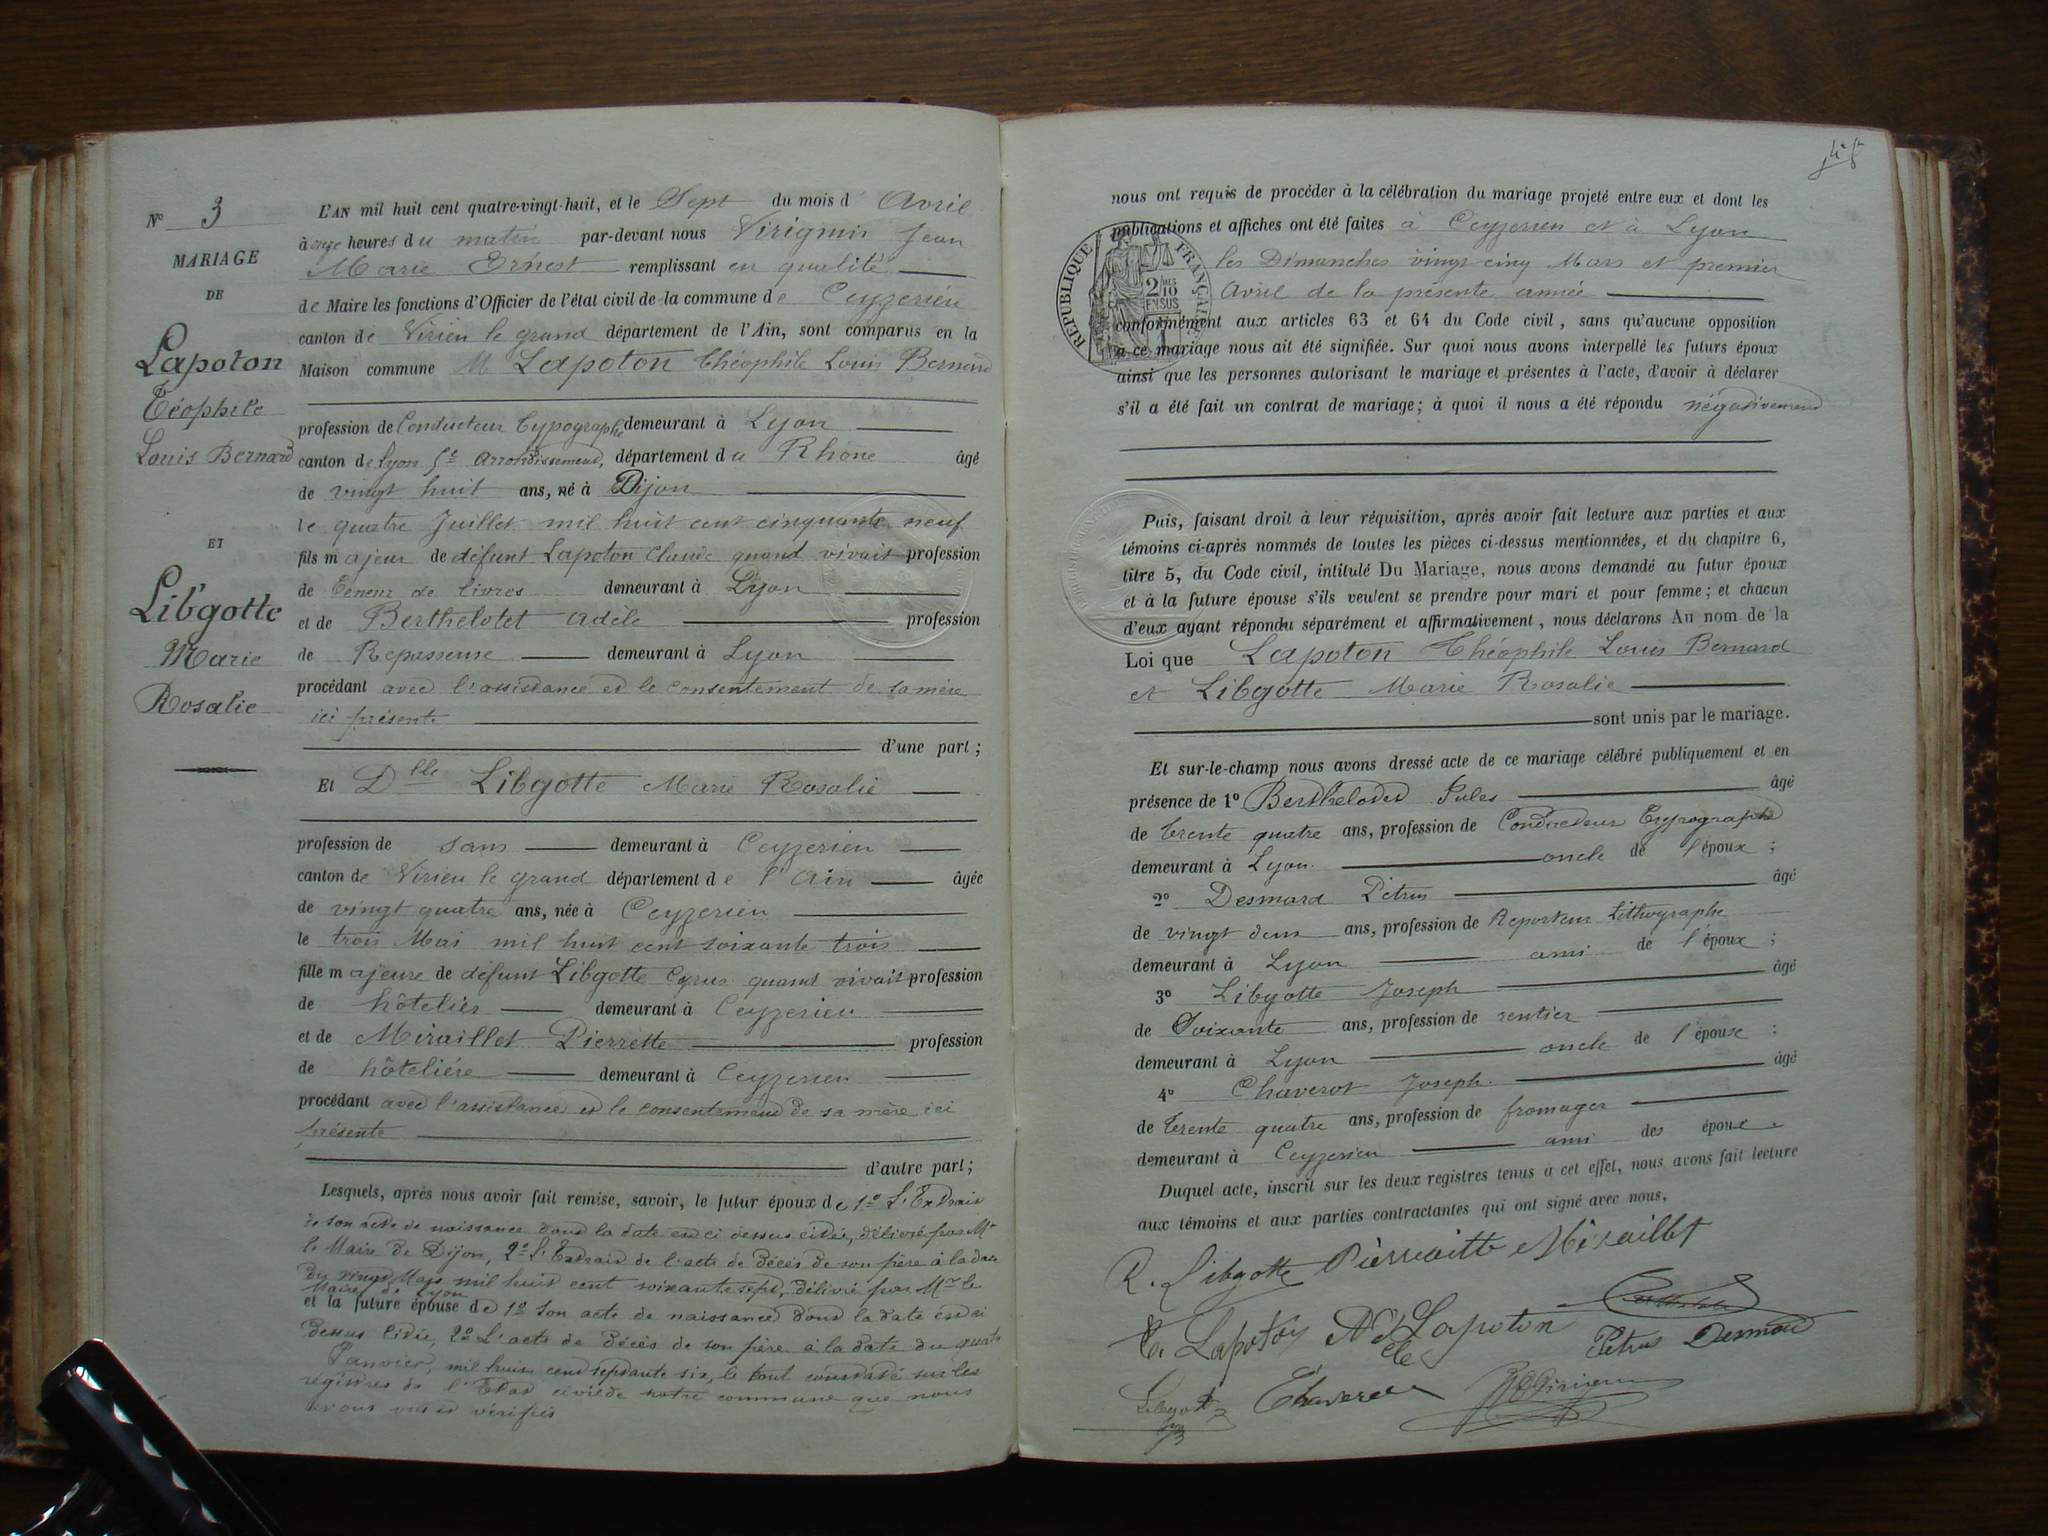 N° 3
MARIAGE
DE
Lapoton
Téophile
Louis Bernard
ET
Libgotte
Marie
Rosalie
L'AN mil huit cent quatre-vingt-huit, et le Sept du mois d' Avril
à onze heures du matin par-devant nous Virignin Jean
Marie Ernest remplissant en qualité
de Maire les fonctions d'Officier de l'état civil de la commune de Ceyzerieu
canton de Virieu le grand département de l'Ain, sont comparus en la
Maison commune M Lapoton Théophile Louis Bernard
profession de Conducteur Typographe demeurant à Lyon
canton de Lyon 5e Arrondissement, département du Rhône âgé
de vingt huit ans, né à Dijon
le quatre Juillet mil huit cent cinquante neuf
fils majeur de défunt Lapoton Claude quand vivait profession
de Teneur de livres demeurant à Lyon
et de Berthelotet Adèle profession
de Repasseuse demeurant à Lyon
procédant avec l'assistance et le consentement de sa mère
ici présente
d'une part;
Et Dlle Libgotte Marie Rosalie
profession de sans demeurant à Ceyzerieu
canton de Virieu le grand département de l'Ain âgée
de vingt quatre ans, née à Ceyzerieu
le trois Mai mil huit cent soixante trois
fille majeure de défunt Libgotte Cyrus quand vivait profession
de hôtelier demeurant à Ceyzerieu
et de Miraillet Pierrette profession
de hôteliére demeurant à Ceyzerieu
procédant avec l'assistance et le consentement de sa mère ici
présente
d'autre part;
Lesquels, après nous avoir fait remise, savoir, le futur époux de 1° L'Extrait
de son acte de naissance dont la date est ci dessus citée, délivré par Mr
le Maire de Dijon, 2° L'Extrait de l'acte de décès de son père à la date
du vingt Mars mil huit cent soixante sept, délivré par Mr le
Maire de Lyon
et la future épouse de 1° Son acte de naissance dont la date est ci
dessus citée, 2° L'acte de décès de son père à la date du quatre
Janvier mil huit cent septante six, le tout constaté sur les
régistres de l'Etat civil de notre commune que nous
avons vus et vérifiés
nous ont requis de procéder à la célébration du mariage projeté entre eux et dont les
publications et affiches ont été faites à Ceyzerieu et à Lyon
les Dimanches vingt cinq Mars et premier
Avril de la présente année
RÉPUBLIQUE FRANÇAISE
2/10 EN SUS
conformément aux articles 63 et 64 du Code civil, sans qu'aucune opposition
à ce mariage nous ait été signifiée. Sur quoi nous avons interpellé les futurs époux
ainsi que les personnes autorisant le mariage et présentes à l'acte, d'avoir à déclarer
s'il a été fait un contrat de mariage; à quoi il nous a été répondu négativement
Puis, faisant droit à leur réquisition, après avoir fait lecture aux parties et aux
témoins ci-après nommés de toutes les pièces ci-dessus mentionnées, et du chapitre 6,
titre 5, du Code civil, intitulé Du Mariage, nous avons demandé au futur époux
et à la future épouse s'ils veulent se prendre pour mari et pour femme; et chacun
d'eux ayant répondu séparément et affirmativement, nous déclarons Au nom de la
Loi que Lapoton Théophile Louis Bernard
et Libgotte Marie Rosalie
sont unis par le mariage.
Et sur-le-champ nous avons dressé acte de ce mariage célébré publiquement et en
présence de 1° Berthelotet Jules âgé
de trente quatre ans, profession de Conducteur Typographe
demeurant à Lyon. oncle de l'époux;
2° Desmard Pétrus âgé
de vingt deux ans, profession de Reporteur Lithographe
demeurant à Lyon ami de l'époux;
3° Libgotte Joseph âgé
de Soixante ans, profession de rentier
demeurant à Lyon oncle de l'épouse;
4° Chaverot Joseph. âgé
de trente quatre ans, profession de fromager
demeurant à Ceyzerieu ami des époux.
Duquel acte, inscrit sur les deux registres tenus à cet effet, nous avons fait lecture
aux témoins et aux parties contractantes qui ont signé avec nous.
R. Libgotte Pierraitte Miraillet
T. Lapoton Adèle Lapoton
Petrus Desmard
Libgotte Chaverot